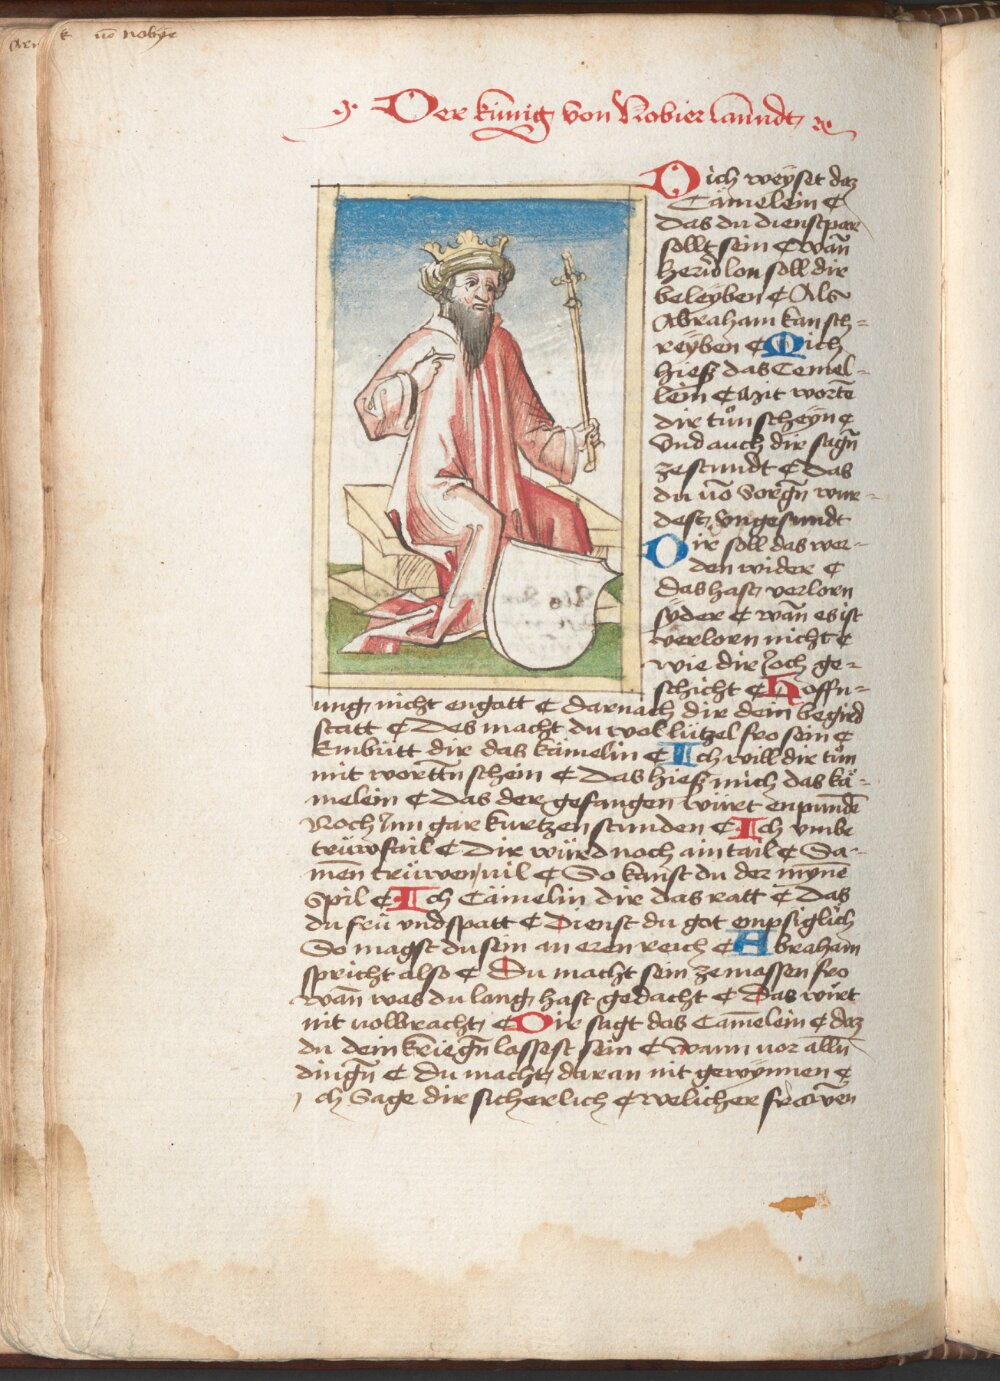 k vō nobye
Der künig von Nobier lanndt
Dich weyset daz
Cämelein ¢
das du dienstper
sollt sein ¢ wan̄
herid lon soll dir
beleyben ¢ Als
Abraham kan sch=
reyben ¢ Mich
hiesz das Cemel=
lein ¢ Mit worte
dir tůn scheyn ¢
Vnd auch dir sagn̄
ze stundt ¢ Das
du vō Sorgn̄ wur=
dest vngesundt
Dir soll das wer=
den wider ¢
das hast verlorn
syder ¢ wan̄ es ist
verlorn nicht ¢
wie dir Joch ge=
schicht ¢ Hoffn=
ung nicht engatt ¢ darnach dir dein begird
statt ¢ Des macht du wol lützel fro sein ¢
Embütt dir das kämelin ¢ Ich will dir tůn
mit wortn̄ schein ¢ Das hiesz mich das kä=
melein ¢ das der gefangen würt enpunde
Noch Jnn gar kurtzen stunden ¢ Ich vmbe
trüwsail ¢ Dir würd noch ain tail ¢ Sa=
men trüwen vil ¢ So kanst du der myne
spil ¢ Ich Cämelin dir das ratt ¢ das
du frü vnd spatt ¢ Dienst du got empsiglich
So magst du sein an eren reich ¢ Abraham
spricht also ¢ Du macht sein ze massen fro
wan̄ was du lang hast gedacht ¢ Das würt
nit volbracht ¢ Dir sagt das Camelein ¢ daz
du dein kriegn̄ lassest sein ¢ wann vor alln̄
dingn̄ ¢ Du macht daran nit gewynnen ¢
Ich Sage dir sicherlich ¢ welicher frawen